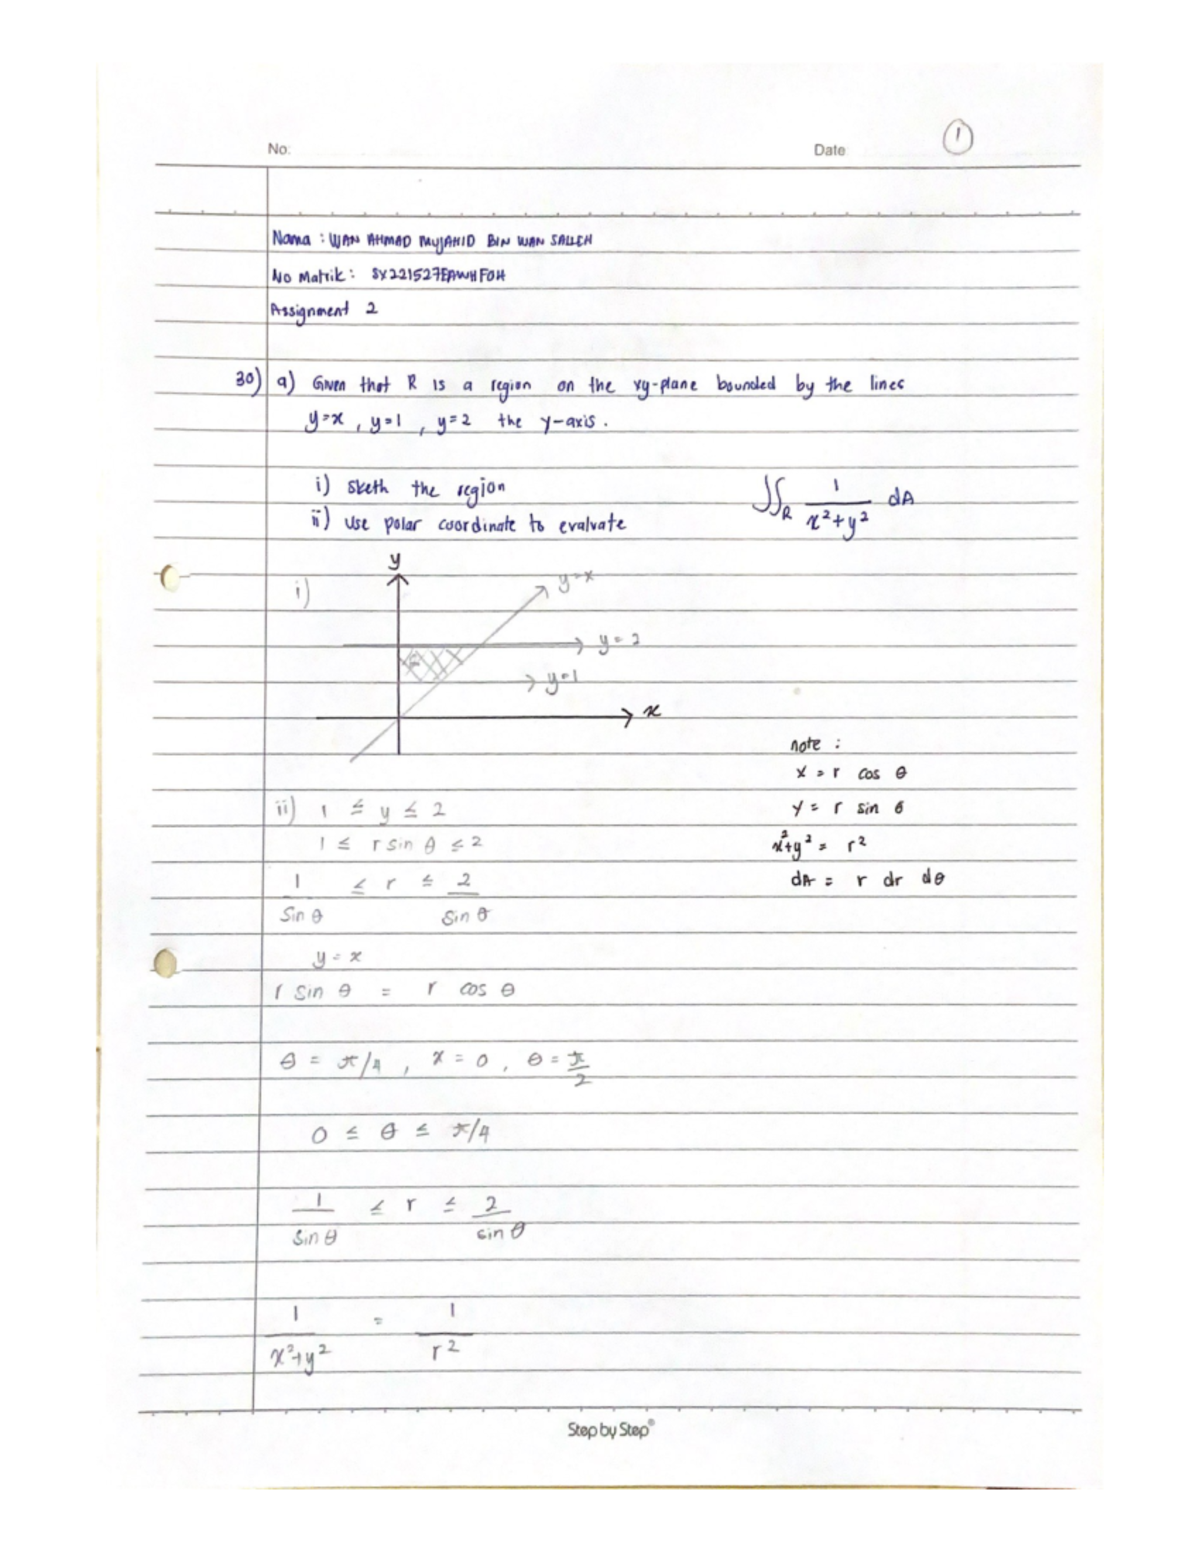 1
No:
Date
Nama : WAN AHMAD MUJAHID BIN WAN SALLEH
No Matrik : SX221527EAWHF0H
Assignment 2
30) a) Given that R is a region on the xy-plane bounded by the lines
y=x , y=1 , y=2 the y-axis .
i) sketh the region
ii) use polar coordinate to evaluate ∬R 1/(x²+y²) dA
i)
y
y=x
y=2
y=1
x
note :
x = r cos θ
y = r sin θ
x²+y² = r²
dA = r dr dθ
ii) 1 ≤ y ≤ 2
1 ≤ r sin θ ≤ 2
1/sin θ ≤ r ≤ 2/sin θ
y = x
r sin θ = r cos θ
θ = π/4 , x = 0 , θ = π/2
0 ≤ θ ≤ π/4
1/sin θ ≤ r ≤ 2/sin θ
1/(x²+y²) = 1/r²
Step by Step®